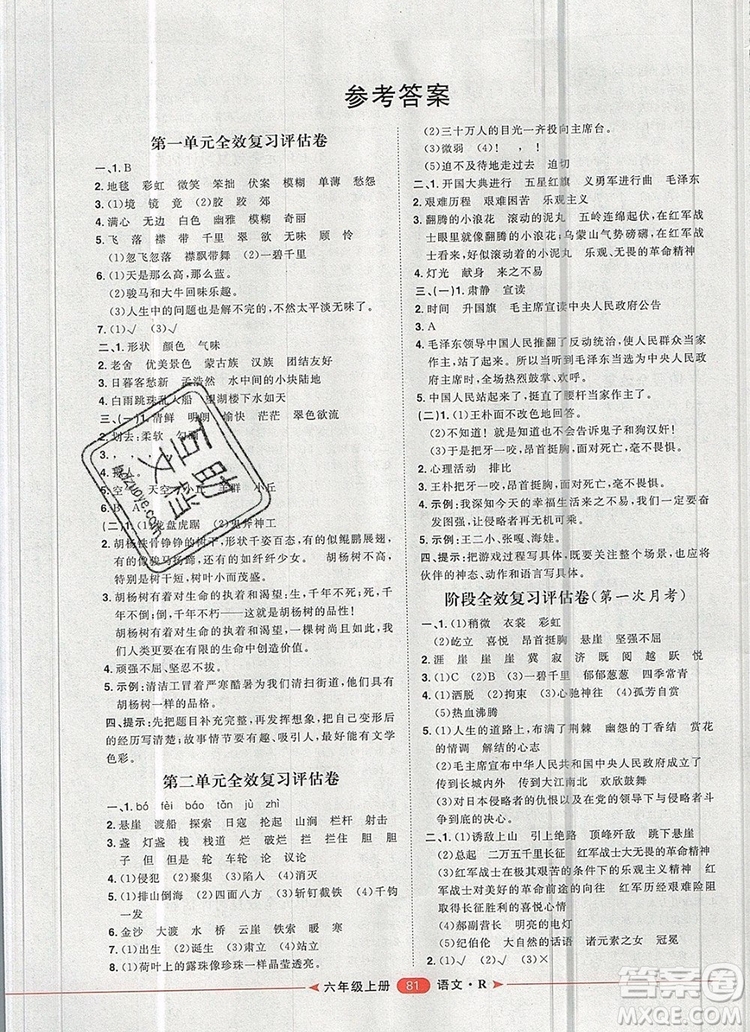 参考答案
第一单元全效复习评估卷
一、1. B
2. 地毯 彩虹 微笑 笨拙 伏案 模糊 单薄 愁怨
3. (1)境 镜 竟 (2)胶 胶 郊
4. 满心 无边 白色 幽雅 模糊 奇丽
5. 飞 落 襟 带 千里 翠 欲 无垠 顾 怜
(1)忽飞忽落 襟飘带舞 (2)一碧千里
6. (1)天是那么高,那么蓝。
(2)骏马和大牛回味乐趣。
(3)人生中的问题也是解不完的,不然太乏味了。
7. (1)√ (3)√
二、1. 形状 颜色 气味
2. 老舍 优美景色 蒙古族 汉族 团结
3. 日暮客愁新 孟浩然 水中间的小块陆地
4. 白雨跳珠乱入船 望湖楼下水如天
三、(一)1. 清鲜 明朗 愉快 茫茫 翠色欲流
2. 划去:柔软 勾
3.
4. 拟人
5. 空 天空 羊群 小丘
6. B A
(二)1. (1)龙盘虎踞 (2)鬼斧神工
2. 胡杨铁骨铮铮的树干;形状千姿百态,有的似鲲鹏展翅,
有的像骏马扬蹄,还有的如纤纤少女。 胡杨树叶更是奇特,
特别是树干短,树叶小而茂盛。
3. 胡杨树有着对生命的执着和渴望;生,千年不死;死,千
年不倒;倒,千年不朽,这就是胡杨树的品性!
胡杨树有着对生命的执着和渴望,一棵树尚且如此,我
们人类更应该在有限的生命中创造无限的价值。
4. 顽强不屈、坚忍不拔。
5. 示例:清洁工冒着严寒酷暑为我们清扫街道,他们具有
胡杨树一样的品格。
四、提示:先把题目补充完整,再发挥想象,把自己变形后
的经历写清楚;故事情节要生动、吸引人,最好能有文学
色彩。
第二单元全效复习评估卷
一、1. bó fèi báo tǎn jù zhì
2. 悬崖 渡船 探索 日寇 抡起 山涧 栏杆 射击
3. 盏 灯盏 栈 栈道 烂 破烂 拦 阻拦 胆 胆
子 但 但是 轮 车轮 论 议论
4. (1)侵犯 (2)聚集 (3)陷入 (4)消灭
5. (1)排山倒海 (2)四面八方 (3)斩钉截铁 (4)千钧
一发
6. 金沙 大渡 水 桥 云崖 铁索 暖 寒
7. (1)出生 (2)诞生 (3)建立 (4)成立
8. (1)荷叶上的露珠像珍珠一样晶莹透亮。
(2)三十万人的目光一齐投向主席台。
(3)微弱 (4)! ,!
(5)迫不及待地走出去 迫切
二、1. 开国大典进行 五星红旗 义勇军进行曲 毛泽东
2. 艰难历程 艰难困苦 乐观主义
3. 翻腾的小浪花 滚动的泥丸 五岭连绵起伏,在红军战
士眼里就像翻腾的小浪花;乌蒙山气势磅礴,在红军战
士看来就像滚动的小泥丸 乐观、无畏的革命精神
4. 灯光 献身 一束亮光
三、(一)1. 肃静 宣读
2. 时间 升国旗 毛主席宣读中央人民政府公告
3. A
4. 毛泽东领导中国人民推翻了反动统治,人民群众当家
作主,站了起来。从此,中国人民从苦难走向辉煌,因此
全场热烈鼓掌、欢呼。
5. 中国人民站起来了,挺直了腰杆当家作主了。
(二)1. (1)王朴面不改色地说:
(2)就是知道,也不会告诉鬼子和狗汉奸!
(3)于是把牙一咬,昂首挺胸,面对死亡,无所畏惧。
2. 心理活动 排比
3. 王朴把牙一咬,昂首挺胸,面对死亡,无所畏惧。
4. 示例:我深知今天的幸福生活来之不易,我们一定要奋
发图强,让侵略者永无可乘之机。
5. 示例:王二小、张嘎、海娃。
四、提示:把游戏过程写具体,既要关注整个场景,也应将
伙伴的神态、动作和语言写具体。
阶段全效复习评估卷(第一次月考)
一、1. (1)稍微 衣裳 彩虹
(2)屹立 喜悦 昂首挺胸 悬崖 坚强不屈
2. 涯 崖 崖 崖 冀 寂 济 既 阅 越 跃 悦
3. (1)C (2)B (3)一碧千里 郁郁葱葱 四季常青
4. (1)洒脱 (2)拘束 (3)心驰神往 (4)孤芳自赏
(5)热血沸腾
5. (1)人生的道路上,布满了荆棘 幽怨的丁香结 赏花
的情调 解结的心志
(2)毛主席宣布中华人民共和国、中央人民政府的成立
传到了长城内外 传到了大江南北 欢欣鼓舞
(3)对日本侵略者的仇恨以及要勇敢地同侵略者斗争的
决心
二、1. (1)诱敌上山 引上绝路 顶峰歼敌 跳下悬崖
(2)总起 二万五千里长征 红军不怕困难 红军
战士在极其艰苦的条件下的乐观主义精神 红军
战士对革命前途的向往 红军历经艰难险阻
取得长征胜利的喜悦心情
(3)郝副营长 明亮的电灯
(4)纪伯伦 大自然的话语 诸元素之女 冠冕
2. (1)√ (2)× (3)√ (4)×
六年级上册 81 语文·R
互助文档
zuoye.com
答案圈
MXQE.COM